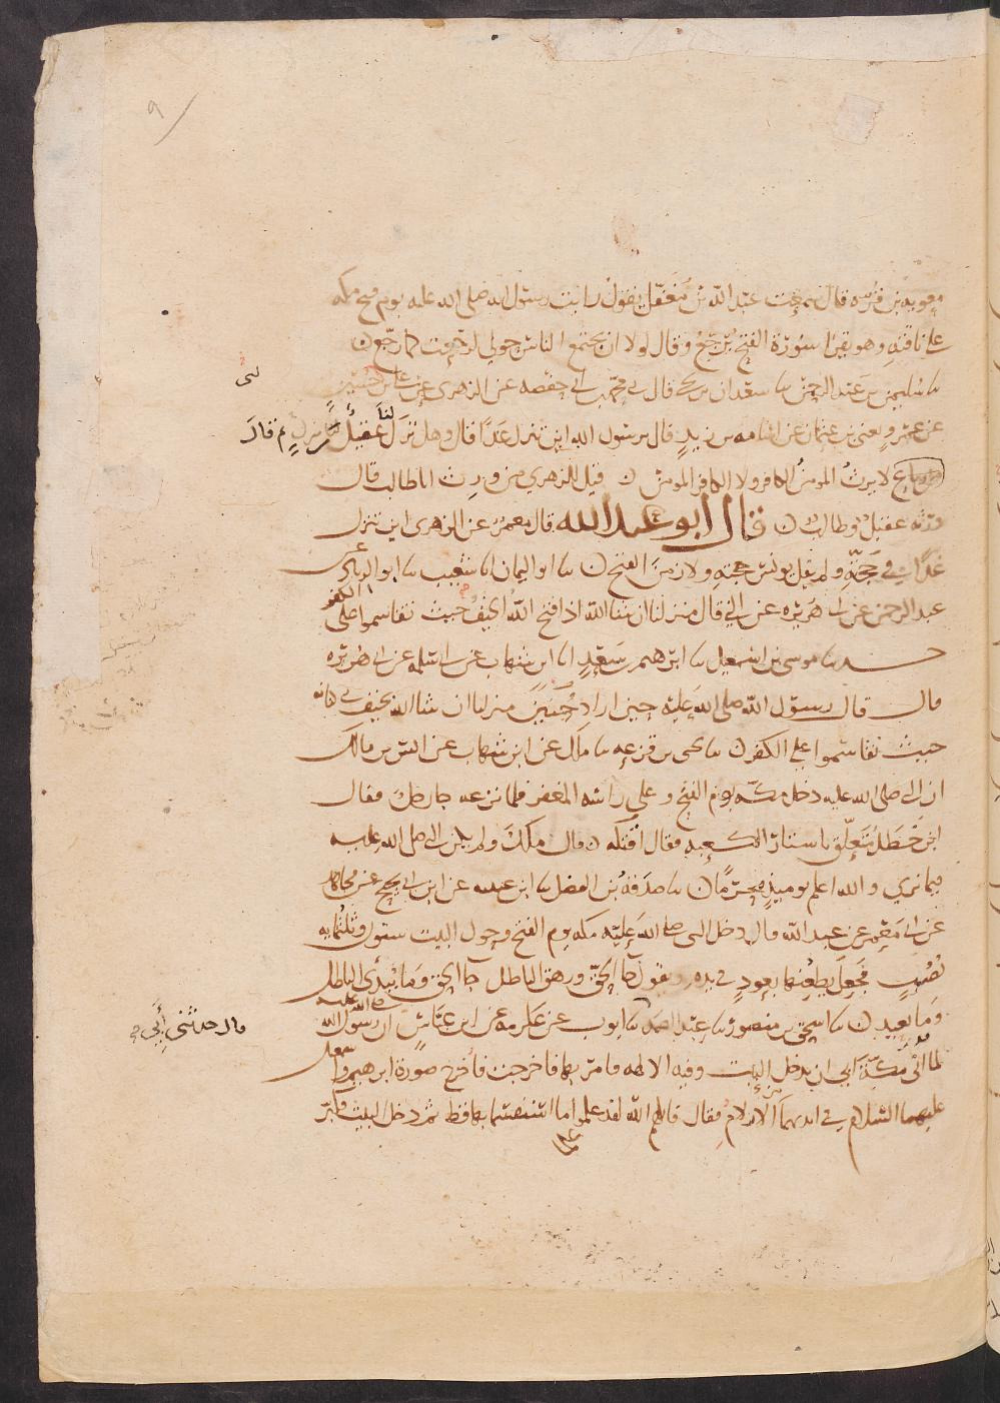 ٩
معوية بن قره قال سمعت عبد الله بن مغفل يقول رايت رسول الله صلى الله عليه يوم فتح مكه
على ناقته وهو يقرا سورة الفتح يرجع وقال لولا ان يجتمع الناس حولي لرجعت كما رجع ن
نا سليمن بن عبد الرحمن نا سعدان بن يحيى قال نى محمد بن ابي حفصه عن الزهري عن علي بن حسين
عن عمرو يعني بن عثمان عن اسامه بن زيد قال يرسول الله اين تنزل غدا قال وهل ترك لنا عقيل من منزل ثم قال
لا يرث المومن الكافر ولا الكافر المومن ن قيل للزهري من ورث ابا طالب قال
ورثه عقيل وطالب ن قال ابو عبد الله قال معمر عن الزهري اين تنزل
غدا في حجته ولم يقل يونس حجته ولا زمن الفتح ن نا ابو اليمان انا شعيب نا ابو الزناد عن
عبد الرحمن عن ابي هريره عن النبي قال منزلنا ان شا الله اذا فتح الله الخيف حيث تقاسموا على الكفر
نا موسى بن اسمعيل نا ابرهيم بن سعد انا ابن شهاب عن ابي سلمه عن ابي هريره
قال قال رسول الله صلى الله عليه حين اراد حنين منزلنا ان شا الله بخيف بني كنانه
حيث تقاسموا على الكفر ن نا يحيى بن قزعه نا ملك عن ابن شهاب عن انس بن مالك
ان النبي صلى الله عليه دخل مكه يوم الفتح وعلى راسه المغفر فلما نزعه جا رجل فقال
ابن خطل متعلق باستار الكعبه فقال اقتله ن قال ملك ولم يكن النبي صلى الله عليه
فيما نري والله اعلم يوميذ محرما ن نا صدقه بن الفضل نا ابن عيينه عن ابن ابي نجيح عن مجاهد
عن ابي معمر عن عبد الله قال دخل النبي صلى الله عليه مكه يوم الفتح وحول البيت ستون وثلثمايه
نصب فجعل يطعنها بعود في يده ويقول جا الحق وزهق الباطل جا الحق وما يبدى الباطل
وما يعيد ن نا اسحق بن منصور نا عبد الصمد نا ايوب عن عكرمه عن ابن عباس ان رسول الله صلى الله عليه
قال حدثني أبي صح
لما أتى مكة ابى ان يدخل البيت وفيه الالهه فامر بها فاخرجت فأخرج صورة ابرهيم واسمعيل
عليهما السلام في ايديهما من الازلام فقال قاتلهم الله لقد علموا ما استقسما بها قط ثم دخل البيت فكبر